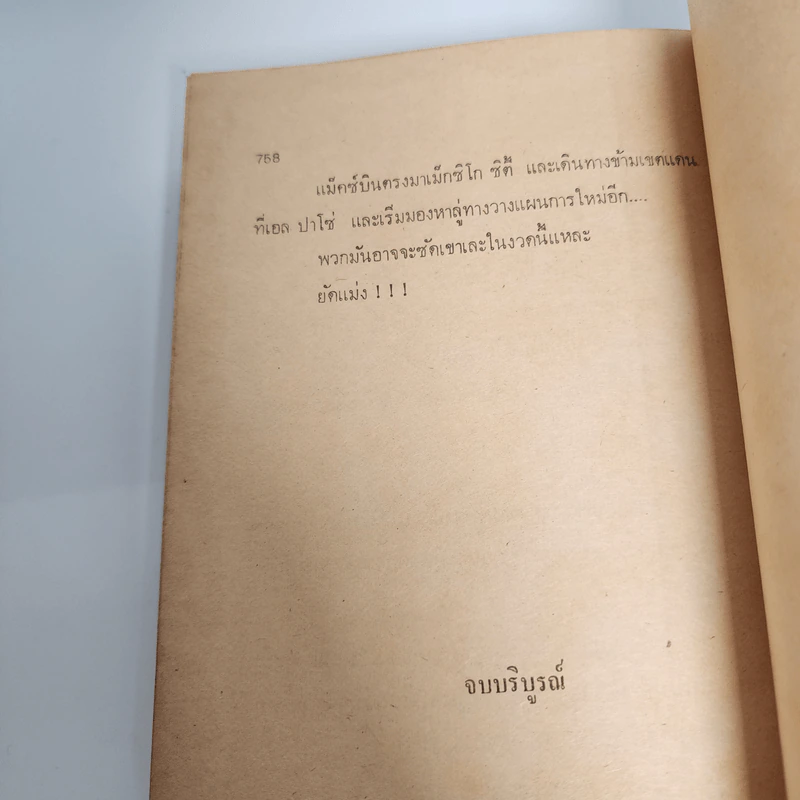 758
แม็คซ์บินตรงมาเม็กซิโก ซิตี้ และเดินทางข้ามเขตแดน
ที่เอล ปาโซ่ และเริ่มมองหาลู่ทางวางแผนการใหม่อีก....
พวกมันอาจจะซัดเขาเละในงวดนี้แหละ
ยัดแม่ง ! ! !
จบบริบูรณ์